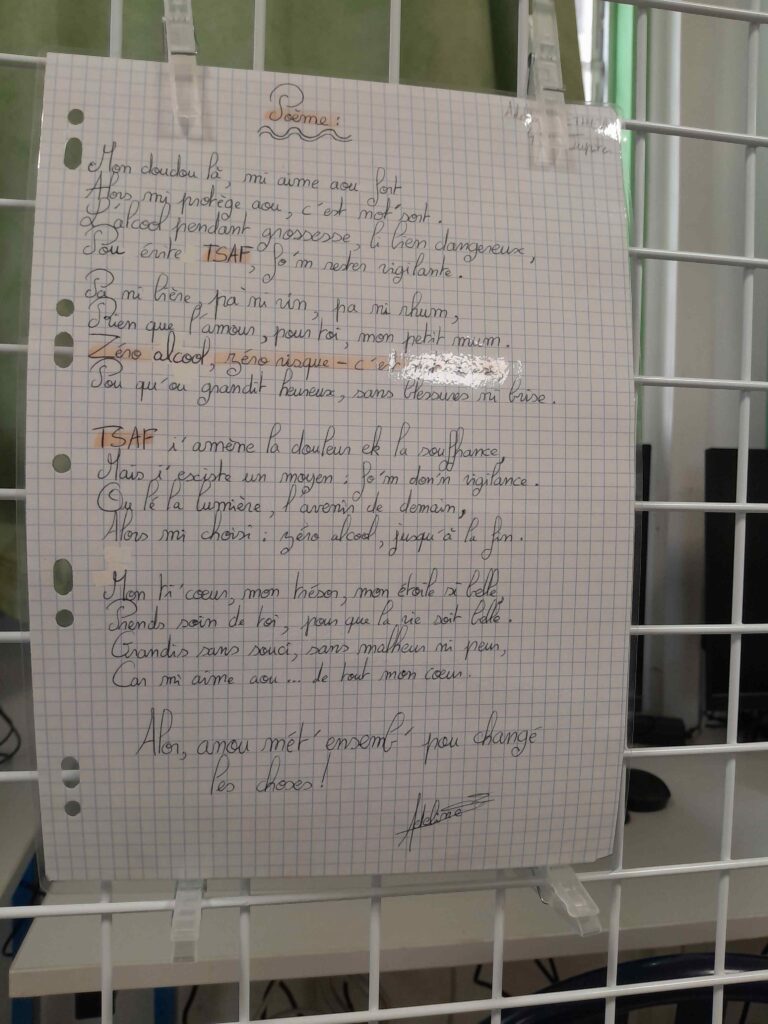 Poème :
Mon doudou là, mi aime aou fort
Alors, mi protège aou, c'est mot' sort.
L'alcool pendant grossesse, li lien dangereux,
Pou évite TSAF, fo'm rester vigilante.
Pa ni bière, pa ni vin, pa ni rhum,
Rien que l'amour, pour toi, mon petit mum.
Zéro alcool, zéro risque - c'est
Pou qu'ou grandit heureux, sans blessures ni brise.
TSAF i'amène la douleur ek la souffrance,
Mais i'existe un moyen : fo'm don'n vigilance.
Ou lé la lumière, l'avenir de demain,
Alors mi choisi : zéro alcool, jusqu'à la fin.
Mon ti'coeur, mon trésor, mon étoile si belle,
Prends soin de toi, pour que la vie soit belle.
Grandis sans souci, sans malheur ni peur,
Car mi aime aou ... de tout mon coeur.
Alor, anou mét' ensemb' pou changé
les choses !
Adeline